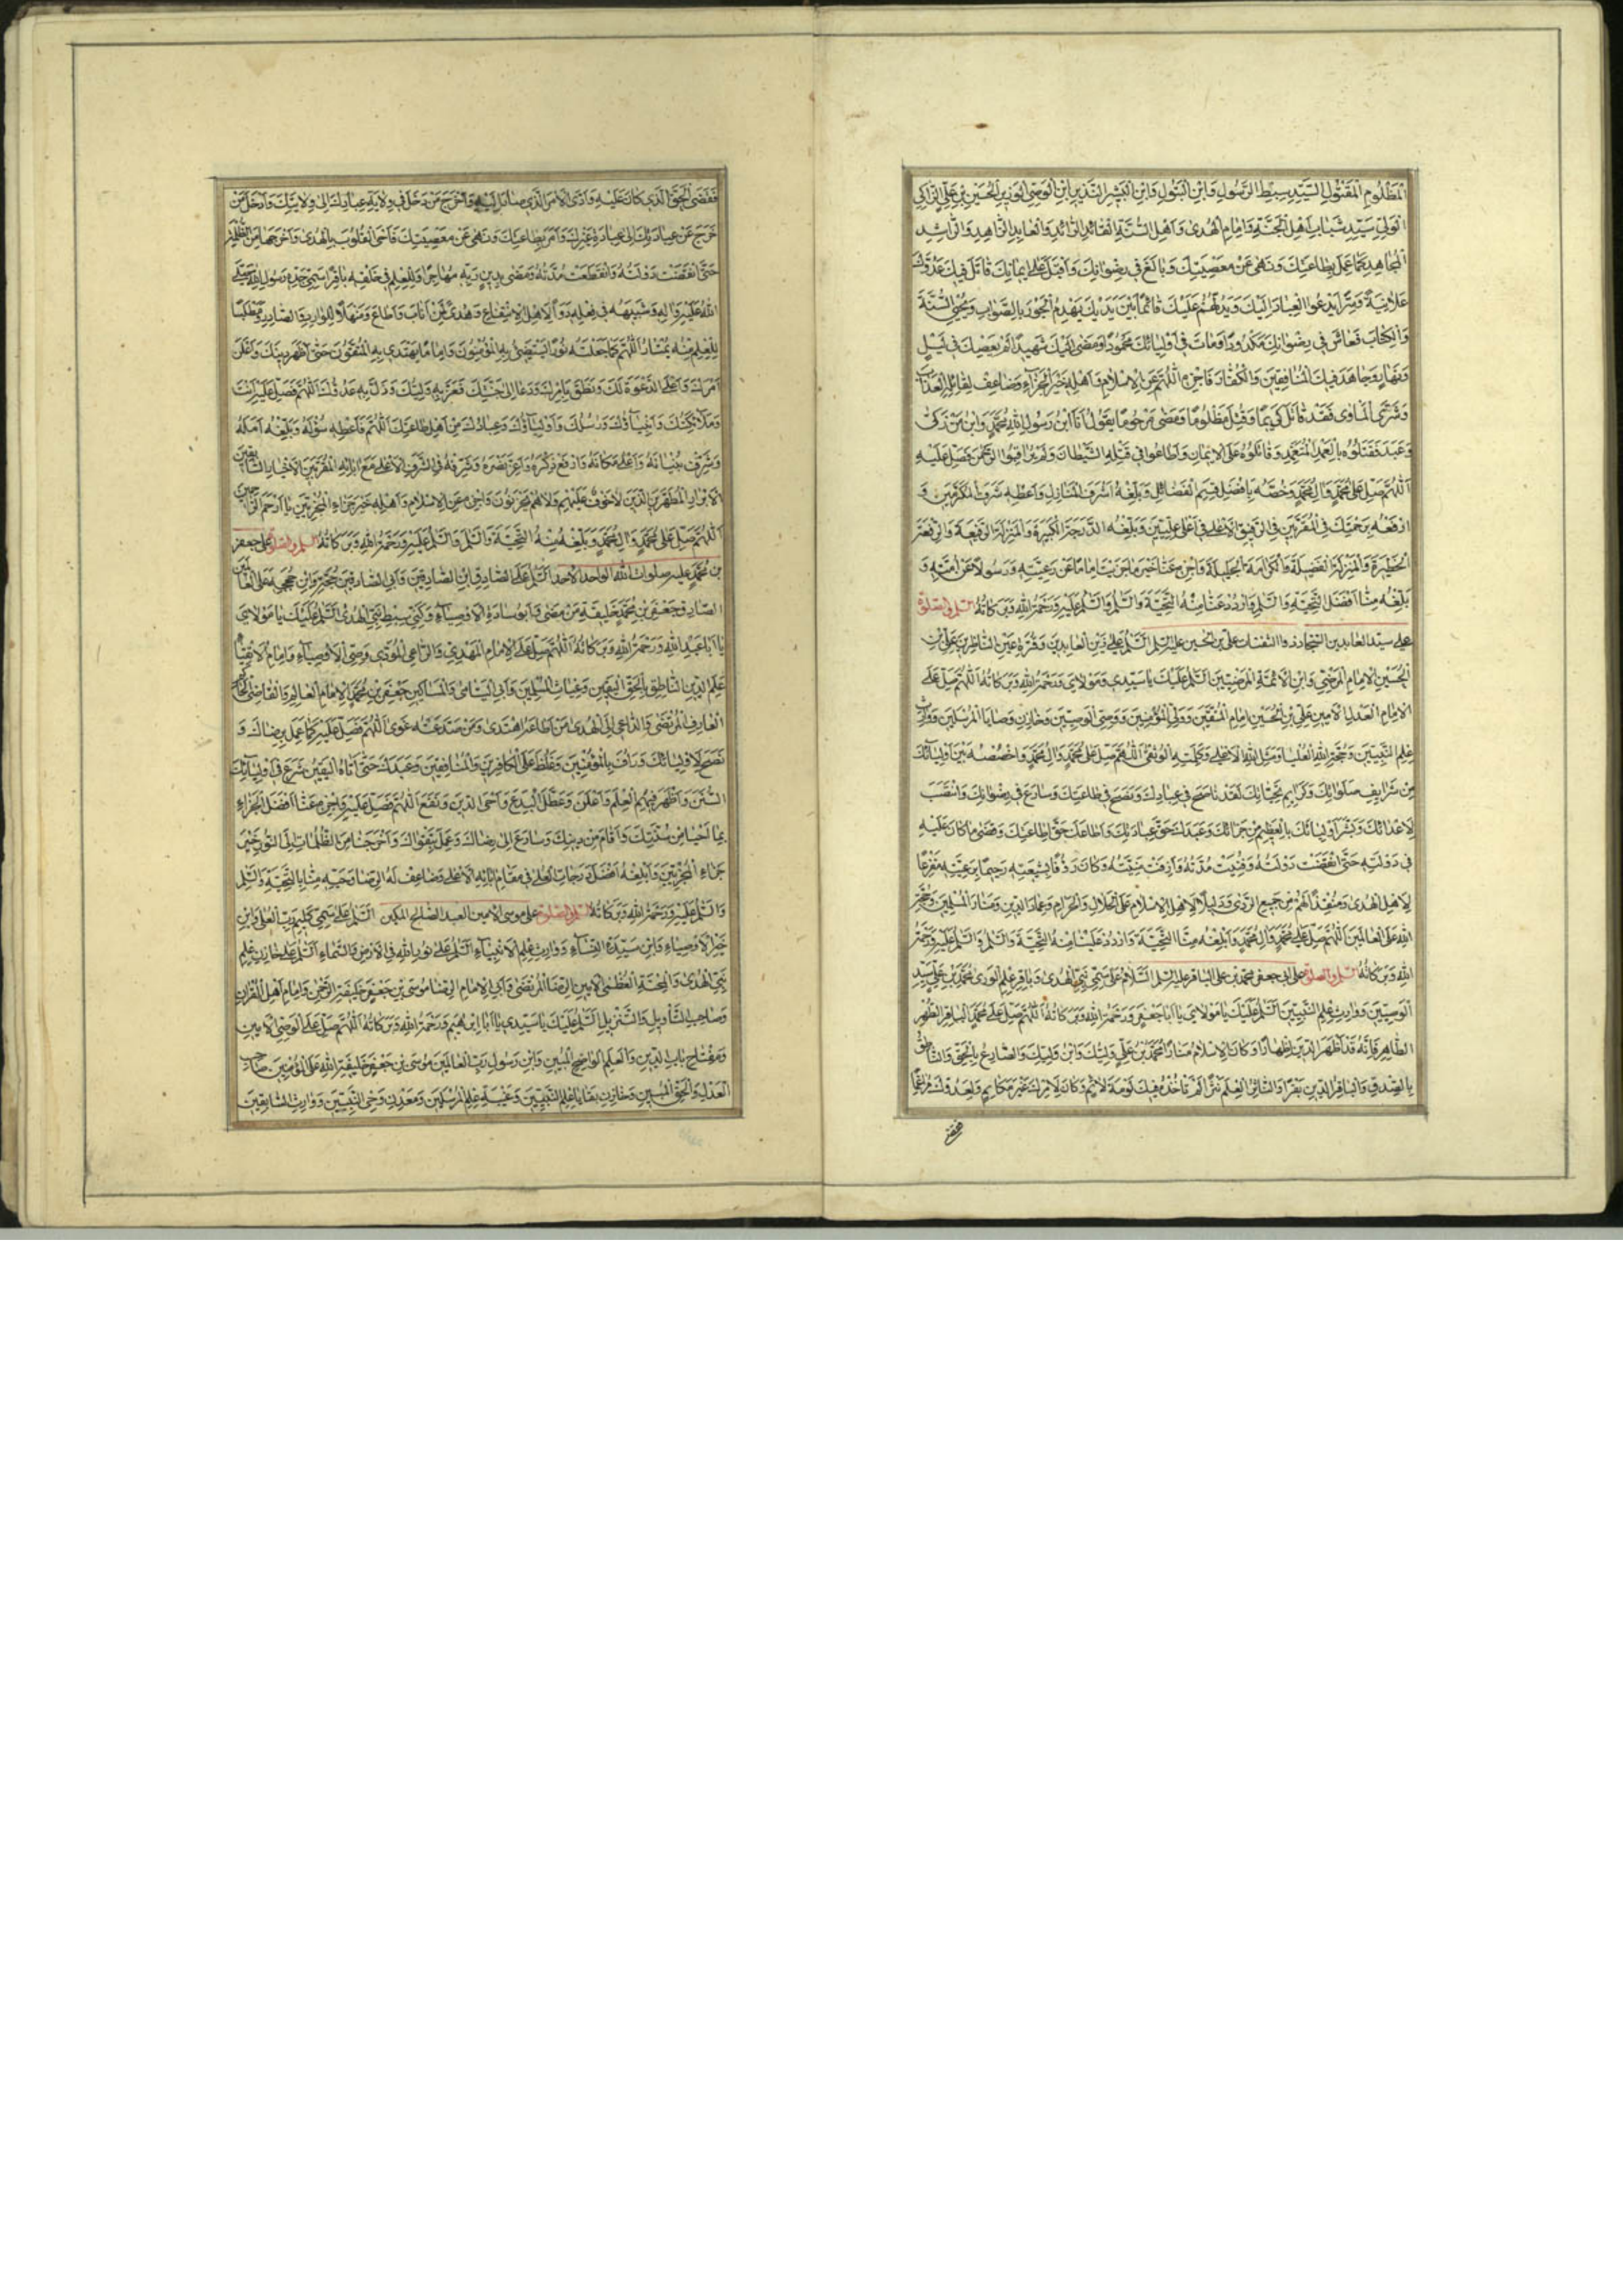 المَظْلُومِ المَقْتُولِ السَّيِّدِ سِبْطِ الرَّسُولِ وَابْنِ البَتُولِ وَابْنِ البَشِيرِ النَّذِيرِ ابْنِ الوَصِيِّ الوَزِيرِ الحُسَيْنِ بْنِ عَلِيٍّ الزَّاكِي
الوَلِيِّ سَيِّدِ شَبَابِ اَهْلِ الجَنَّةِ وَاِمَامِ الهُدَى وَاَهْلِ السُّنَّةِ القَائِدِ الرَّائِدِ وَالعَابِدِ الزَّاهِدِ وَالرَّاشِدِ
المُجَاهِدِ كَمَا عَمِلَ بِطَاعَتِكَ وَنَهَى عَنْ مَعْصِيَتِكَ وَبَالَغَ فِي رِضْوَانِكَ وَاَقْبَلَ عَلَى اِيمَانِكَ قَاتَلَ فِيكَ عَدُوَّكَ
عَلَانِيَةً وَسِرًّا يَدْعُو العِبَادَ اِلَيْكَ وَيَدُلُّهُمْ عَلَيْكَ قَائِمًا بَيْنَ يَدَيْكَ يَهْدِمُ الجَوْرَ بِالصَّوَابِ وَيُحْيِي السُّنَّةَ
وَالكِتَابَ فَعَاشَ فِي رِضْوَانِكَ مَكْدُودًا وَمَاتَ فِي اَوْلِيَائِكَ مَحْمُودًا وَمَضَى اِلَيْكَ شَهِيدًا لَمْ يَعْصِكَ فِي لَيْلٍ
وَنَهَارٍ وَجَاهَدَ فِيكَ المُنَافِقِينَ وَالكُفَّارَ فَاجْزِهِ اللّٰهُمَّ عَنِ الاِسْلَامِ وَاَهْلِهِ خَيْرَ الجَزَاءِ وَضَاعِفْ لِقَاتِلِهِ العَذَابَ
فَقَدْ قَاتَلَ كَرِيمًا وَقُتِلَ مَظْلُومًا وَمَضَى مَرْحُومًا يَقُولُ اَنَا ابْنُ رَسُولِ اللهِ مُحَمَّدٍ وَابْنُ مَنْ زَكَّى
وَعَبَدَ فَقَتَلُوهُ بِالعَمْدِ المُتَعَمَّدِ وَقَاتَلُوهُ عَلَى الاِيمَانِ وَاَطَاعُوا فِي قَتْلِهِ الشَّيْطَانَ وَلَمْ يُرَاقِبُوا الرَّحْمٰنَ فَصَلِّ عَلَيْهِ
اللّٰهُمَّ صَلِّ عَلَى مُحَمَّدٍ وَالِ مُحَمَّدٍ وَخُصَّهُ بِاَفْضَلِ قِسَمِ الفَضَائِلِ وَبَلِّغْهُ اَشْرَفَ المَنَازِلِ وَاَعْطِهِ شَرَفَ المُكَرَّمِينَ وَ
ارْفَعْهُ بِرَحْمَتِكَ فِي المُقَرَّبِينَ فِي الرَّفِيقِ الاَعْلَى فِي اَعْلَى عِلِّيِّينَ وَبَلِّغْهُ الدَّرَجَةَ الكَبِيرَةَ وَالمَنْزِلَةَ الرَّفِيعَةَ
وَالمَنْزِلَةَ الفَضِيلَةَ وَالكَرَامَةَ الجَلِيلَةَ وَاجْزِهِ عَنَّا خَيْرَ مَا جَزَيْتَ اِمَامًا عَنْ رَعِيَّتِهِ وَرَسُولًا عَنْ اُمَّتِهِ وَ
بَلِّغْهُ مِنَّا اَفْضَلَ التَّحِيَّةِ وَالسَّلَامِ وَارْدُدْ عَلَيْنَا مِنْهُ التَّحِيَّةَ وَالسَّلَامَ وَالسَّلَامُ عَلَيْهِ وَرَحْمَةُ اللهِ وَبَرَكَاتُهُ السلام والصلوة
على سيد العابدين السجاد ذو الثفنات علي بن الحسين عليه السلام اَلسَّلَامُ عَلَى زَيْنِ العَابِدِينَ وَقُرَّةِ عَيْنِ النَّاظِرِينَ عَلِيِّ بْنِ
الحُسَيْنِ الاِمَامِ المَرْضِيِّ وَابْنِ الاَئِمَّةِ المَرْضِيِّينَ اَلسَّلَامُ عَلَيْكَ يَا سَيِّدِي وَمَوْلَايَ وَرَحْمَةُ اللهِ وَبَرَكَاتُهُ اَللّٰهُمَّ صَلِّ عَلَى
الاِمَامِ العَدْلِ الاَمِينِ عَلِيِّ بْنِ الحُسَيْنِ اِمَامِ المُتَّقِينَ وَوَلِيِّ المُؤْمِنِينَ وَوَصِيِّ الوَصِيِّينَ وَخَازِنِ وَصَايَا المُرْسَلِينَ وَوَارِثِ
عِلْمِ النَّبِيِّينَ وَحُجَّةِ اللهِ العُلْيَا وَمَثَلِ اللهِ الاَعْلَى وَكَلِمَتِهِ الوُثْقَى اَللّٰهُمَّ صَلِّ عَلَى مُحَمَّدٍ وَالِ مُحَمَّدٍ وَاخْصُصْهُ بَيْنَ اَوْلِيَائِكَ
مِنْ شَرَائِفِ صَلَوَاتِكَ وَكَرَائِمِ تَحِيَّاتِكَ لَقَدْ نَاصَحَ فِي عِبَادِكَ وَنَصَحَ فِي طَاعَتِكَ وَسَارَعَ فِي رِضْوَانِكَ وَانْتَصَبَ
لِاَعْدَائِكَ وَبَشَّرَ اَوْلِيَائَكَ بِالعَظِيمِ مِنْ جَزَائِكَ وَعَبَدَكَ حَقَّ عِبَادَتِكَ وَاَطَاعَكَ حَقَّ اِطَاعَتِكَ وَقَضَى مَا كَانَ عَلَيْهِ
فِي دَوْلَتِهِ حَتَّى انْقَضَتْ دَوْلَتُهُ وَفَنِيَتْ مُدَّتُهُ وَاَزِفَتْ مَنِيَّتُهُ وَكَانَ رَؤُفًا بِشِيعَتِهِ رَحِيمًا بِرَعِيَّتِهِ مَفْزَعًا
لِاَهْلِ الهُدَى وَمُنْقِذًا لَهُمْ مِنْ جَمِيعِ الرَّدَى وَدَلِيلًا لِاَهْلِ الاِسْلَامِ عَلَى الحَلَالِ وَالحَرَامِ وَعِمَادَ الدِّينِ وَمَنَارَ المُسْلِمِينَ وَحُجَّةَ
اللهِ عَلَى العَالَمِينَ اَللّٰهُمَّ صَلِّ عَلَى مُحَمَّدٍ وَالِ مُحَمَّدٍ وَاَبْلِغْهُ مِنَّا التَّحِيَّةَ وَارْدُدْ عَلَيْنَا مِنْهُ التَّحِيَّةَ وَالسَّلَامَ وَالسَّلَامُ عَلَيْهِ وَرَحْمَةُ
اللهِ وَبَرَكَاتُهُ السلام والصلوة على ابي جعفر محمد بن علي الباقر عليه السلام اَلسَّلَامُ عَلَى سَمِيِّ نَبِيِّ الهُدَى وَبَاقِرِ عِلْمِ الوَرَى مُحَمَّدِ بْنِ عَلِيٍّ سَيِّدِ
الوَصِيِّينَ وَوَارِثِ عِلْمِ النَّبِيِّينَ اَلسَّلَامُ عَلَيْكَ يَا مَوْلَايَ يَا اَبَا جَعْفَرٍ وَرَحْمَةُ اللهِ وَبَرَكَاتُهُ اَللّٰهُمَّ صَلِّ عَلَى مُحَمَّدٍ البَاقِرِ الطُّهْرِ
الطَّاهِرِ فَاِنَّهُ قَدْ اَظْهَرَ الدِّينَ اِظْهَارًا وَكَانَ لِلاِسْلَامِ مَنَارًا مُحَمَّدِ بْنِ عَلِيٍّ وَلِيِّكَ وَابْنِ وَلِيِّكَ وَالصَّادِعِ بِالحَقِّ وَالنَّاطِقِ
بِالصِّدْقِ وَالبَاقِرِ الدِّينَ بَقْرًا وَالنَّاثِرِ العِلْمَ نَثْرًا لَمْ تَأْخُذْهُ فِيكَ لَوْمَةُ لَائِمٍ وَكَانَ لِاَمْرِكَ غَيْرَ مَكَاتِمٍ وَلِعَدُوِّكَ مُرَاغِمًا
فَقَضَى الحَقَّ الَّذِي كَانَ عَلَيْهِ وَاَدَّى الاَمَانَةَ الَّتِي صَارَتْ اِلَيْهِ وَاَخْرَجَ مَنْ دَخَلَ فِي وِلَايَةِ عِبَادِكَ اِلَى وِلَايَتِكَ وَاَدْخَلَ مَنْ
خَرَجَ عَنْ عِبَادَتِكَ اِلَى عِبَادَةِ غَيْرِكَ وَاَمَرَ بِطَاعَتِكَ وَنَهَى عَنْ مَعْصِيَتِكَ فَاَحْيَى القُلُوبَ بِالهُدَى وَاَخْرَجَهَا مِنَ الظُّلْمَةِ
حَتَّى انْقَضَتْ دَوْلَتُهُ وَانْقَطَعَتْ مُدَّتُهُ وَمَضَى بِدِينِ رَبِّهِ مُهَاجِرًا وَلِلْعِلْمِ فِي خَلْقِهِ بَاقِرًا سَمِيِّ جَدِّهِ رَسُولِ اللهِ صَلَّى
اللهُ عَلَيْهِ وَالِهِ وَشَبِيهِهِ فِي فِعْلِهِ دَوَاءً لِاَهْلِ الاِنْتِفَاعِ وَهُدًى لِمَنْ اَنَابَ وَاَطَاعَ وَمَنْهَلًا لِلْوَارِدِ وَالصَّادِرِ وَمَطْلَبًا
لِلْعِلْمِ مِنْهُ يُمْتَارُ اَللّٰهُمَّ كَمَا جَعَلْتَهُ نُورًا يَسْتَضِيءُ بِهِ المُؤْمِنُونَ وَاِمَامًا يَهْتَدِي بِهِ المُتَّقُونَ حَتَّى اَظْهَرَ دِينَكَ وَاَعْلَنَ
اَمْرَكَ وَاَعْلَى الدَّعْوَةَ لَكَ وَنَطَقَ بِاَمْرِكَ وَدَعَا اِلَى جَنَّتِكَ فَعَزَّ بِهِ وَلِيُّكَ وَذَلَّ بِهِ عَدُوُّكَ اَللّٰهُمَّ فَصَلِّ عَلَيْهِ اَنْتَ
وَمَلَائِكَتُكَ وَاَنْبِيَاؤُكَ وَرُسُلُكَ وَاَوْلِيَاؤُكَ وَعِبَادُكَ مِنْ اَهْلِ طَاعَتِكَ اَللّٰهُمَّ فَاَعْطِهِ سُؤْلَهُ وَبَلِّغْهُ اَمَلَهُ
وَشَرِّفْ بُنْيَانَهُ وَاَعْلِ مَكَانَهُ وَارْفَعْ ذِكْرَهُ وَاَعِزَّ نَصْرَهُ وَشَرِّفْهُ فِي الشَّرَفِ الاَعْلَى مَعَ ابَائِهِ المُقَرَّبِينَ الاَخْيَارِ السَّابِقِينَ
الاَبْرَارِ المُطَهَّرِينَ الَّذِينَ لَا خَوْفٌ عَلَيْهِمْ وَلَا هُمْ يَحْزَنُونَ وَاجْزِهِ عَنِ الاِسْلَامِ وَاَهْلِهِ خَيْرَ جَزَاءِ المَجْزِيِّينَ يَا اَرْحَمَ الرَّاحِمِينَ
اَللّٰهُمَّ صَلِّ عَلَى مُحَمَّدٍ وَالِ مُحَمَّدٍ وَبَلِّغْهُ مِنَّا التَّحِيَّةَ وَالسَّلَامَ وَالسَّلَامُ عَلَيْهِ وَرَحْمَةُ اللهِ وَبَرَكَاتُهُ السلام والصلوة على جعفر
بن محمد عليه صلوات الله الواحد الاحد اَلسَّلَامُ عَلَى الصَّادِقِ ابْنِ الصَّادِقِينَ وَاَبِي الصَّادِقِينَ حُجَّةِ اللهِ وَابْنِ حُجَجِهِ عَلَى العَالَمِينَ
الصَّادِقِ جَعْفَرِ بْنِ مُحَمَّدٍ خَلِيفَةِ مَنْ مَضَى وَاَبِي سَادَةِ الاَوْصِيَاءِ وَكَنِيِّ سِبْطِ نَبِيِّ الهُدَى اَلسَّلَامُ عَلَيْكَ يَا مَوْلَايَ
يَا اَبَا عَبْدِ اللهِ وَرَحْمَةُ اللهِ وَبَرَكَاتُهُ اَللّٰهُمَّ صَلِّ عَلَى الاِمَامِ المَهْدِيِّ وَالرَّاعِي المُؤَدِّي وَصِيِّ الاَوْصِيَاءِ وَاِمَامِ الاَتْقِيَاءِ
عَلَمِ الدِّينِ النَّاطِقِ بِالحَقِّ اليَقِينِ وَغِيَاثِ المُسْلِمِينَ وَاَبِي اليَتَامَى وَالمَسَاكِينِ جَعْفَرِ بْنِ مُحَمَّدٍ الاِمَامِ العَالِمِ وَالقَاضِي الحَاكِمِ
العَارِفِ المُرْتَضَى وَالدَّاعِي اِلَى الهُدَى مَنْ اَطَاعَهُ اهْتَدَى وَمَنْ صَدَّ عَنْهُ غَوَى اَللّٰهُمَّ فَصَلِّ عَلَيْهِ كَمَا عَمِلَ بِرِضَاكَ وَ
نَصَحَ لِاَوْلِيَائِكَ وَرَاَفَ بِالمُؤْمِنِينَ وَغَلَّظَ عَلَى الكَافِرِينَ وَالمُنَافِقِينَ وَعَبَدَكَ حَتَّى اَتَاهُ اليَقِينُ شَرَعَ فِي اَوْلِيَائِكَ
السُّنَنَ وَاَظْهَرَ فِيهِمُ العِلْمَ وَاَعْلَنَ وَعَطَّلَ البِدَعَ وَاَحْيَى الدِّينَ وَنَفَعَ اَللّٰهُمَّ فَصَلِّ عَلَيْهِ وَاجْزِهِ عَنَّا اَفْضَلَ الجَزَاءِ
بِمَا اَحْيَا مِنْ سُنَّتِكَ وَاَقَامَ مِنْ دِينِكَ وَسَارَعَ اِلَى رِضَاكَ وَعَمِلَ بِتَقْوَاكَ وَاَخْرَجَنَا مِنَ الظُّلُمَاتِ اِلَى النُّورِ خَيْرَ
جَزَاءِ المَجْزِيِّينَ وَاَبْلِغْهُ اَفْضَلَ دَرَجَاتِ العُلَى فِي مَقَامِ ابَائِهِ الاَعْلَى وَضَاعِفْ لَهُ مِنَّا التَّحِيَّةَ وَالسَّلَامَ
وَالسَّلَامُ عَلَيْهِ وَرَحْمَةُ اللهِ وَبَرَكَاتُهُ السلام والصلوة على موسى الامين العبد الصالح المكين اَلسَّلَامُ عَلَى سَمِيِّ كَلِيمِ رَبِّ العُلَى وَابْنِ
خَيْرِ الاَوْصِيَاءِ وَابْنِ سَيِّدَةِ النِّسَاءِ وَوَارِثِ عِلْمِ الاَنْبِيَاءِ اَلسَّلَامُ عَلَى نُورِ اللهِ فِي الاَرْضِ وَالسَّمَاءِ اَلسَّلَامُ عَلَى خَازِنِ عِلْمِ
نَبِيِّ الهُدَى وَالمِحْنَةِ العُظْمَى الاَمِينِ الرِّضَا المُرْتَضَى وَاَبِي الاِمَامِ الرِّضَا مُوسَى بْنِ جَعْفَرٍ خَلِيفَةِ الرَّحْمٰنِ وَاِمَامِ اَهْلِ القُرْانِ
وَصَاحِبِ التَّأْوِيلِ وَالتَّنْزِيلِ اَلسَّلَامُ عَلَيْكَ يَا سَيِّدِي يَا اَبَا اِبْرٰهِيمَ وَرَحْمَةُ اللهِ وَبَرَكَاتُهُ اَللّٰهُمَّ صَلِّ عَلَى الوَصِيِّ الاَمِينِ
وَمِفْتَاحِ بَابِ الدِّينِ وَالعَلَمِ الوَاضِحِ المُبِينِ وَابْنِ رَسُولِ رَبِّ العَالَمِينَ مُوسَى بْنِ جَعْفَرٍ خَلِيفَةِ اللهِ عَلَى المُؤْمِنِينَ صَاحِبِ
العَدْلِ وَالحَقِّ المُبِينِ وَخَازِنِ بَقَايَا عِلْمِ النَّبِيِّينَ وَعَيْبَةِ عِلْمِ المُرْسَلِينَ وَمَعْدِنِ وَحْيِ النَّبِيِّينَ وَوَارِثِ السَّابِقِينَ